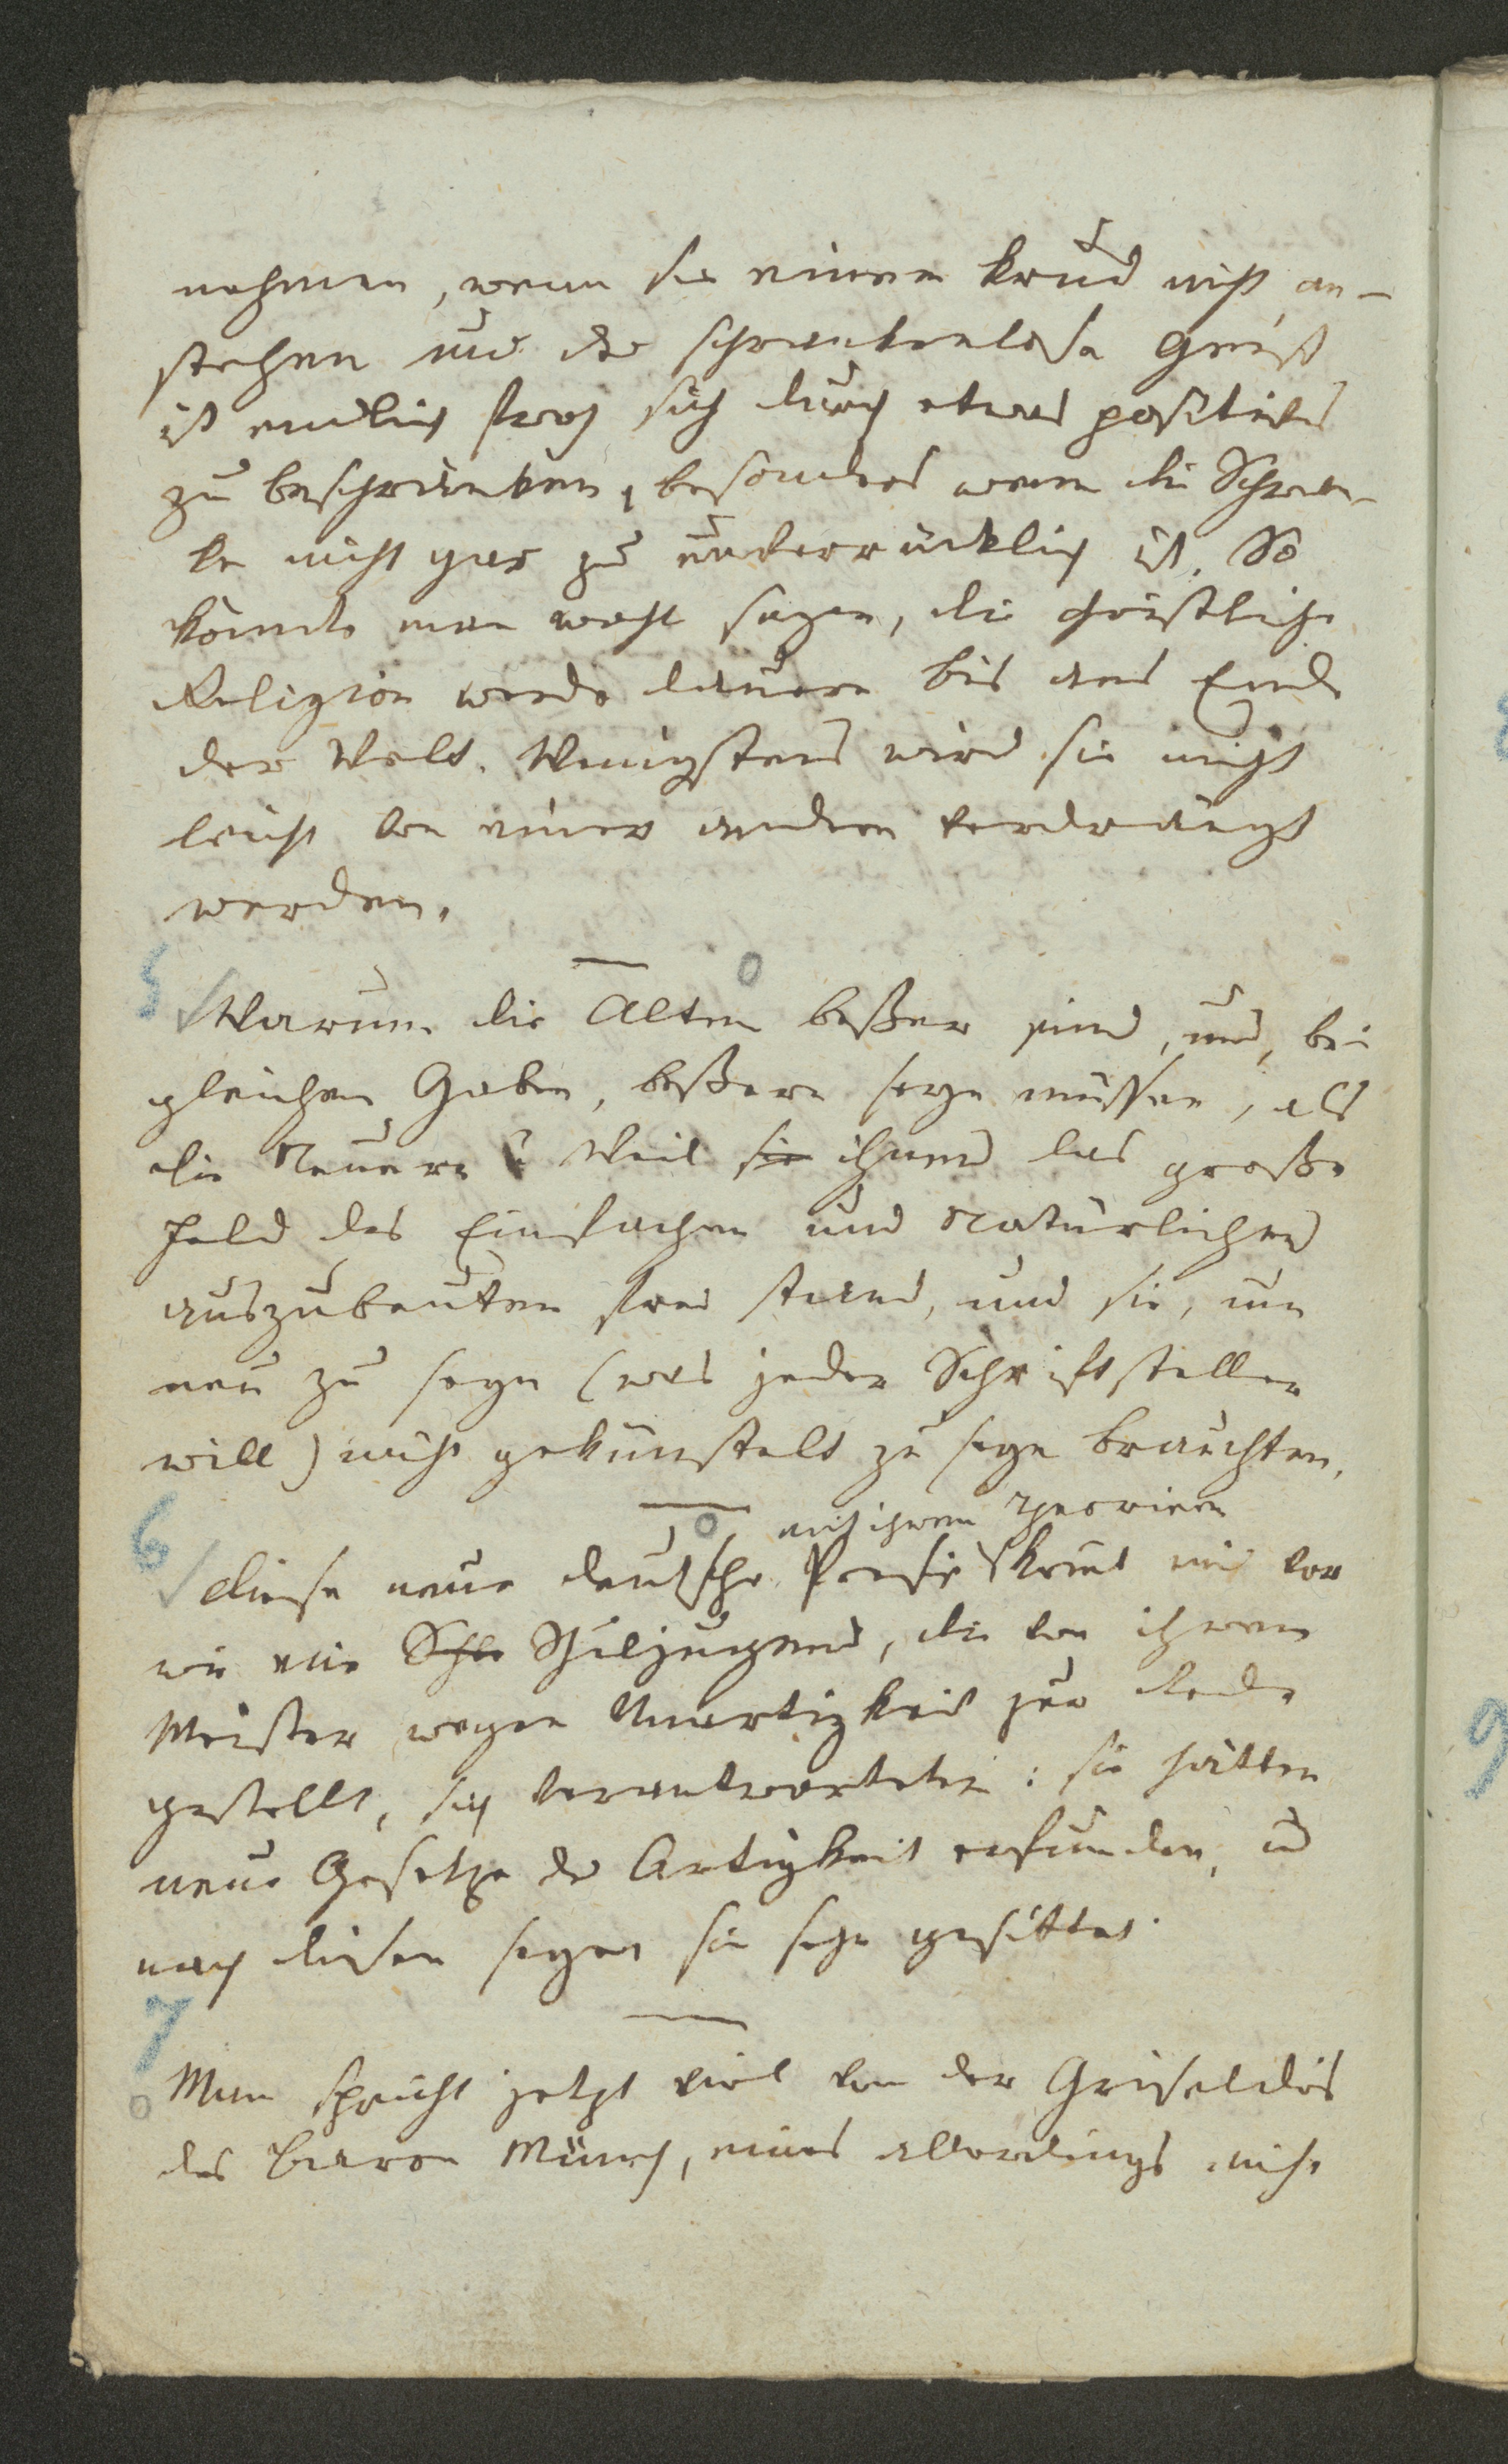 nehmen, wenn sie einem Kind nicht an-
stehen und der schrankenlose Geist
ist endlich froh sich durch etwas positives
zu beschränken, besonders wenn die Schran-
ke nicht gar zu unverrücklich ist. So
könnte man wohl sagen, die christliche
Religion werde dauern bis ans Ende
der Welt. Wenigstens wird sie nicht
leicht von einer andern verdrängt
werden.
5 Warum die Alten beßer sind, und, bei
gleichen Gaben, beßere seyn müssen, als
die Neuern? Weil sie ihnen das große
Feld des Einfachen und Natürlichen
auszubeuten frei stand, und sie, um
neu zu seyn (was jeder Schriftsteller
will) nicht gekünstelt zu seyn brauchten.
mit ihren Theorien
6 diese neue deutsche Poesie kömt mir vor
wie eine Schu Schuljugend, die von ihrem
Meister wegen Unartigkeit zur Rede
gestellt, sich verantwortete: sie hätten
neue Gesetze der Artigkeit erfunden, u
nach diesen seyen sie sehr gesittet.
7
Man spricht jetzt viel von der Griseldis
des Baron Münch, eines allerdings nicht